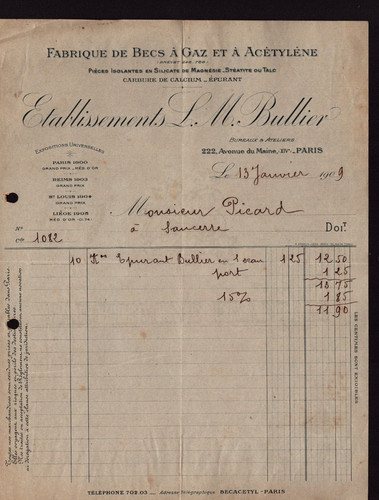 FABRIQUE DE BECS À GAZ ET À ACÉTYLÈNE
PIÈCES ISOLANTES EN SILICATE DE MAGNÉSIE _ STÉATITE OU TALC
CARBURE DE CALCIUM _ ÉPURANT
Etablissements L. M. Bullier
EXPOSITIONS UNIVERSELLES
BUREAUX & ATELIERS
222, Avenue du Maine, _ PARIS
PARIS 1900
GRAND PRIX _ MÉD. D'OR
REIMS 1903
GRAND PRIX
ST LOUIS 1904
GRAND PRIX
LIÉGE 1905
Le 13 Janvier 1909
Monsieur Picard
à Sancerre
DOIT
N°
Cte 1082
10 Kos Epurant Bullier en 1 seau 1 25 12 50
port 1 25
15% 1 85
11 90
LES CENTIMES SONT EXIGIBLES
TÉLÉPHONE 702-03 _ Adresse Télégraphique BECACETYL-PARIS